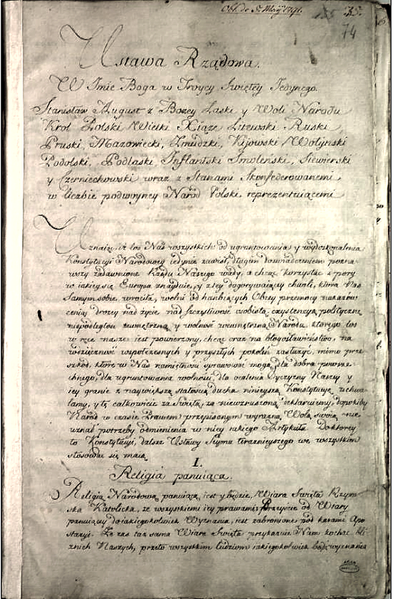 Ustawa Rządowa.
W Imie Boga w Troycy Swiętey Jedynego.
Stanisław August z Bożey Łaski y Woli Narodu
Krol Polski, Wielki Xiąże Litewski, Ruski
Pruski, Mazowiecki, Zmudzki, Kijowski Wołyński
Podolski, Podlaski Inflantski Smoleński, Siewierski
y Czerniechowski, wraz z Stanami Skonfederowanemi
w liczbie podwoyney Narod Polski reprezentuiącemi
Uznaiąc, iż los Nas wszystkich od ugruntowania y wydoskonalenia
Konstytucyi Narodowey iedynie zawisł, długim doświadczeniem pozna
wszy zadawnione Rządu Naszego wady, a chcąc korzystać z pory
w iakiey się Europa znayduie, y z tey dogorywaiącey chwili, która Nas
Samym sobie wróciła, wolni od hańbiących Obcey przemocy nakazów
ceniąc drożey nad życie, nad szczęśliwość osobistą, exystencyą polityczną
niepodległość zewnętrzną, y wolność wewnętrzną Narodu, którego los
w ręce nasze iest powierzony, chcąc oraz na błogosławieństwo, na
wdzięczność współczesnych y przyszłych pokoleń zasłużyć, mimo prze
szkód, które w Nas namiętności sprawować mogą, dla dobra powsze
chnego, dla ugruntowania wolności, dla ocalenia Oyczyzny Naszey, y
iey granic z naywiększą stałością ducha, ninieyszą Konstytucyę uchwa
lamy, y tę całkowicie za świętą, za niewzruszoną deklaruiemy, dopókiby
Naród w czasie Prawem przepisanym wyraźną Wolą swoią nie
uznał potrzeby odmienienia w niey iakiego Artykułu. Do ktorey
to Konstytucyi, dalsze Ustawy Seymu teraznieyszego we wszystkim
stosować się maią.
I.
Religia panuiąca.
Religią Narodową panuiącą iest y będzie Wiara Święta Rzym
ska Katolicka, ze wszystkiemi iey prawami, Przeyście od Wiary
panuiącey do iakiegokolwiek Wyznania, iest zabronione pod karami Apo
stazyi. Że zaś ta sama Wiara Święta przykazuie Nam kochać bli
źnich Naszych, przeto wszystkim ludziom iakiegokolwiek bądź wyznania